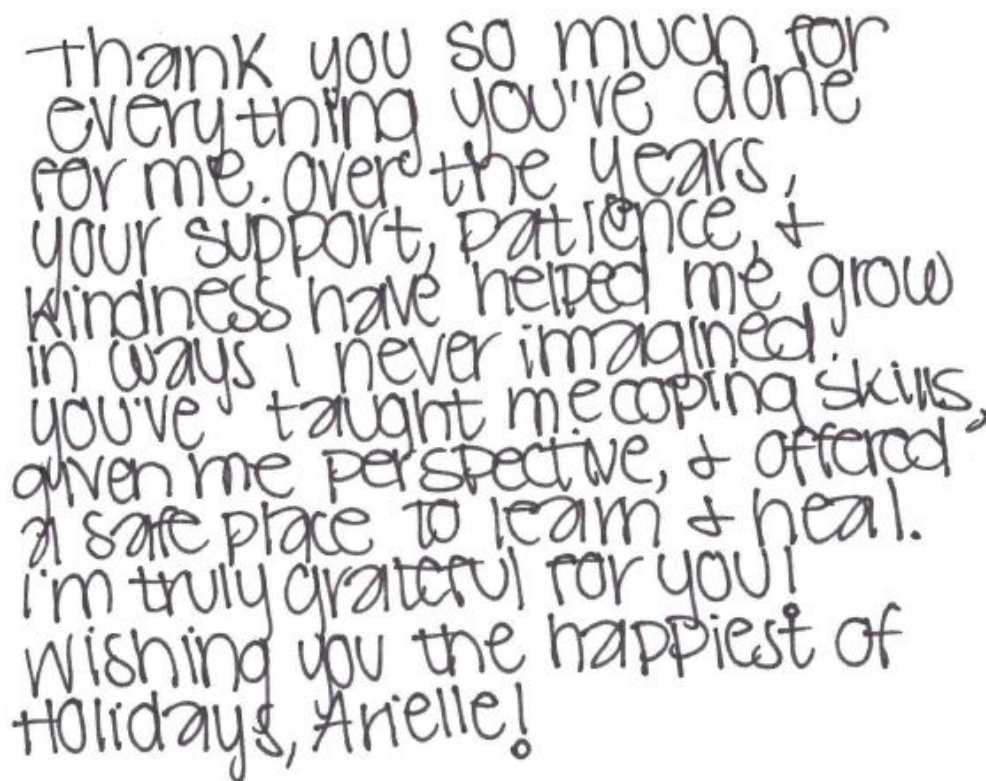 Thank you so much for
everything you've done
for me. Over the years,
your support, patience, &
kindness have helped me grow
in ways I never imagined.
you've taught me coping skills,
given me perspective, & offered
a safe place to learn & heal.
I'm truly grateful for you!
Wishing you the happiest of
Holidays, Arielle!